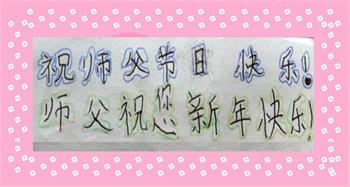 祝师父节日快乐!
师父祝您新年快乐!